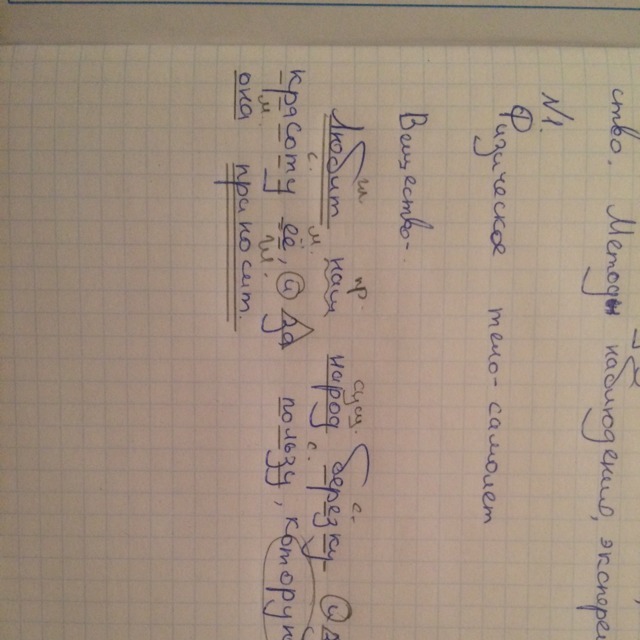 ство. Методы наблюдения, экспере
N1.
Физическое тело - самолет
Вещество -
гл. пр. сущ. с.
Любит наш народ березку
с. м. с.
красоту её, и за пользу,
м. гл.
она приносит.